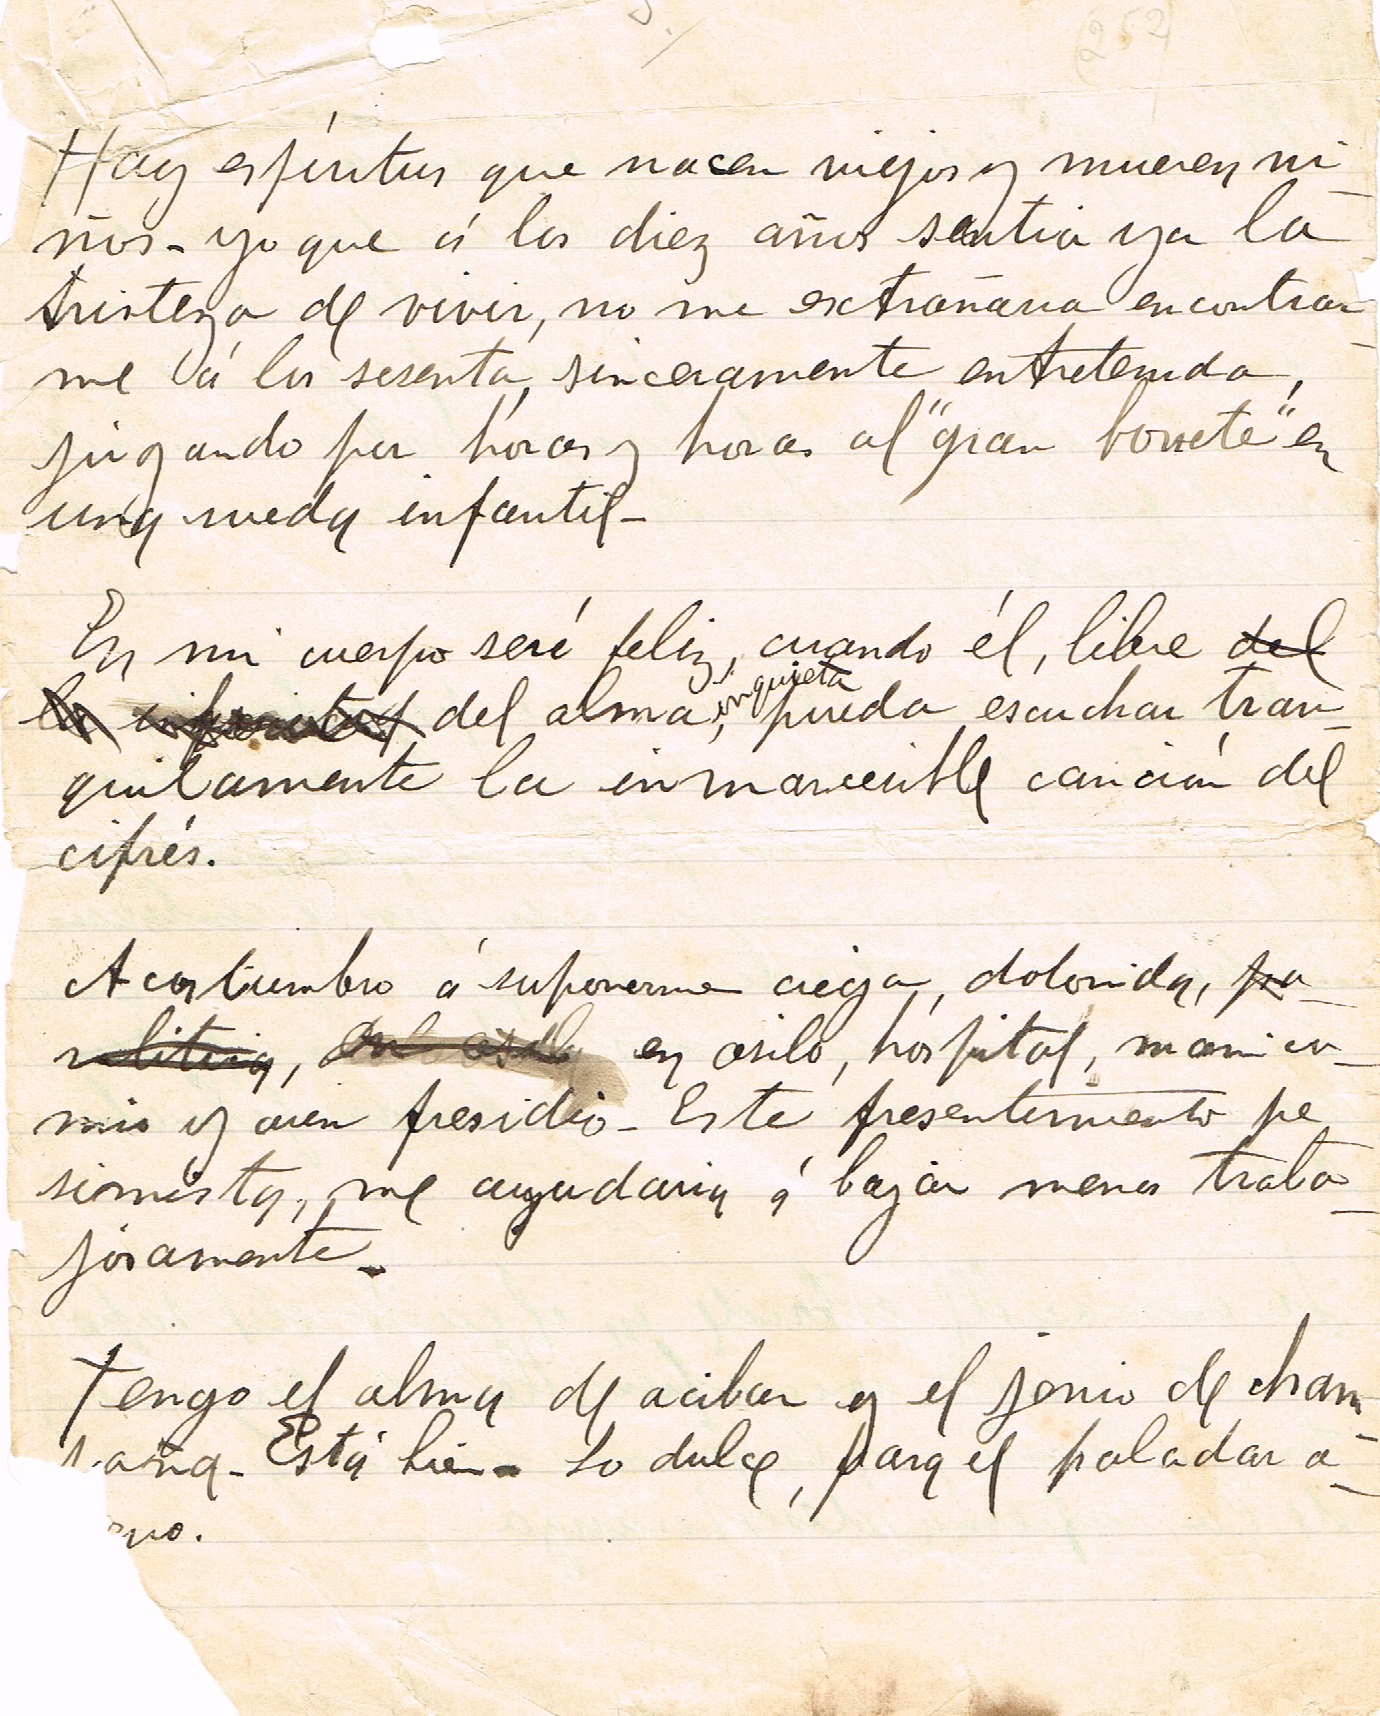 (252
Hay espíritus que nacen viejos y mueren ni-
ños- yo que á los diez años sentia ya la
tristeza de vivir, no me extrañaria encontrar-
me á los sesenta, sinceramente entretenida,
jugando por horas y horas al "gran bonete" en
una rueda infantil-
En mi cuerpo seré feliz, cuando él, libre del
la del alma, inquieta pueda escuchar tran-
quilamente la inmarcesible canción del
ciprés.
Acostumbro á suponerme ciega, dolorida, pa-
ralitica, en asilo, hospital, manico-
mio y aun presidio- Este presentimiento pe
simista, me ayudaria á bajar menos traba-
josamente-
Tengo el alma de acibar y el jenio de cham
paña- Está bien- Lo dulce, para el paladar a-
eno.